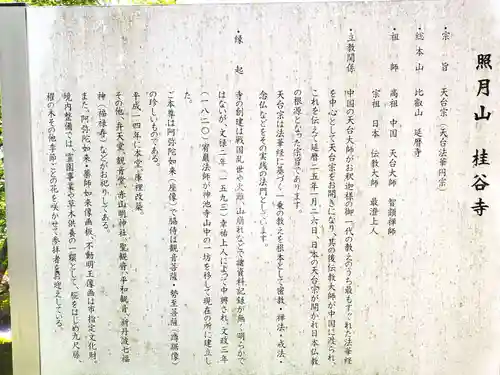 照月山 桂谷寺
・宗 旨 天台宗(天台法華円宗)
・総本山 比叡山 延暦寺
・祖 師 高祖 中国 天台大師 智顗禅師
宗祖 日本 伝教大師 最澄上人
・立教関係 中国の天台大師がお釈迦様の御一代の教えのうち最もすぐれた法華経
を中心として天台宗をお開きになり、其の後伝教大師が中国に渡られ、
これを伝えて延暦二五年一月二六日、日本の天台宗が開かれ日本仏教
の根源となった宗旨であります。
天台宗は法華経に基づく一乗の教えを根本として密教・禅法・戒法・
念仏などをその実践の法門としています。
・縁 起 寺の創建は戦国乱世や火難、山崩れなどで諸資料記録が無く明らかで
はないが、文禄二年(一五九三)幸祐上人によって中興され、文政三年
(一八二〇)宥巌法師が神池寺山中の一坊を移して現在の所に建立し
た。
ご本尊は阿弥陀如来(座像)で脇侍は観音菩薩・勢至菩薩(跪踞像)
の珍しいものである。
平成一四年に本堂、庫裡改築。
その他、弁天堂、観音堂、赤山明神社、聖観音、平和観音、新丹波七福
神(福禄寿)などがお祀りしてある。
また、阿弥陀如来・薬師如来像画板、不動明王像画は市指定文化財。
境内整備では、霊園事業や草木供養の一環として、桜をはじめ九尺藤、
榧の木その他季節ごとの花を咲かせて参拝者をお迎えしている。